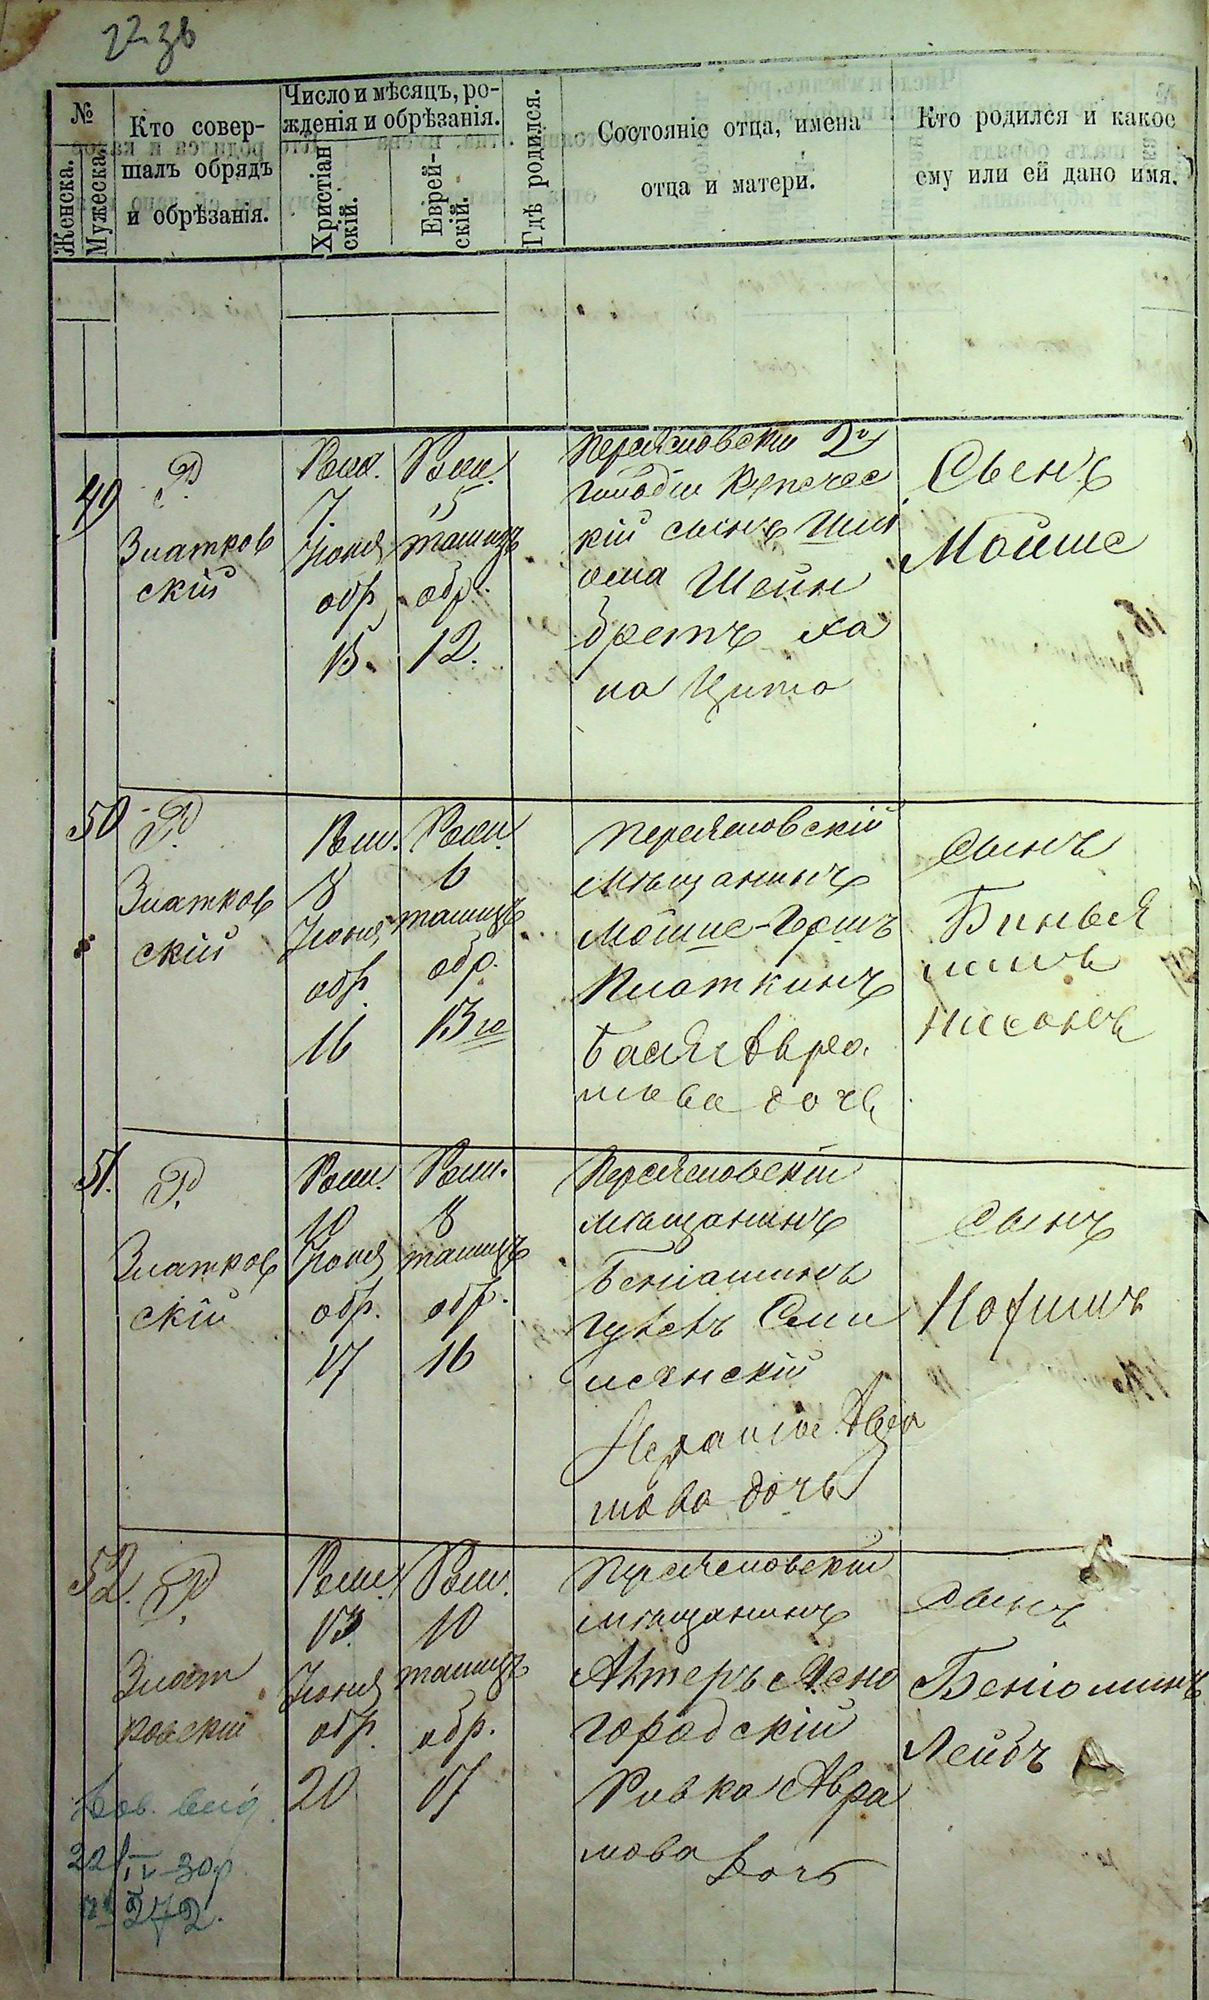 №
Женска.
Мужеска.
Кто совер-
шалъ обрядъ
и обрѣзанія.
Число и мѣсяцъ, ро-
жденія и обрѣзанія.
Христіан
скій.
Еврей-
скій.
Гдѣ родился.
Состояніе отца, имена
отца и матери.
Кто родился и какое
ему или ей дано имя.
49
Р.
Златков
скій
7
Іюня
обр
15.
5
обр.
12.
Переясловскій 2й
гильдіи Купечес
кій сынъ
Шейн
бретъ Ха
на Цита
Сынъ
Мойше
50
Р.
Златков
скій
8
Іюня
обр
16
6
обр.
13го
Переясловскій
мѣщанинъ
Мойше-Гершъ
Плоткинъ
Бася Авра
мова дочь
Сынъ
Биньея
минъ
Нисонъ
51.
Р.
Златков
скій
10
Іюня
обр.
17
8
обр.
16
Переясловскій
мѣщанинъ
Беніаминъ
Сми
лянскій
Авра
мова дочь
Сынъ
52.
Р.
Злат
ковскій
13
Іюня
обр
20
10
обр.
17
Переясловскій
мѣщанинъ
Ясно
городскій
Ривка Авра
мова Дочь
Сынъ
Беніоминъ
Лейбъ
272.